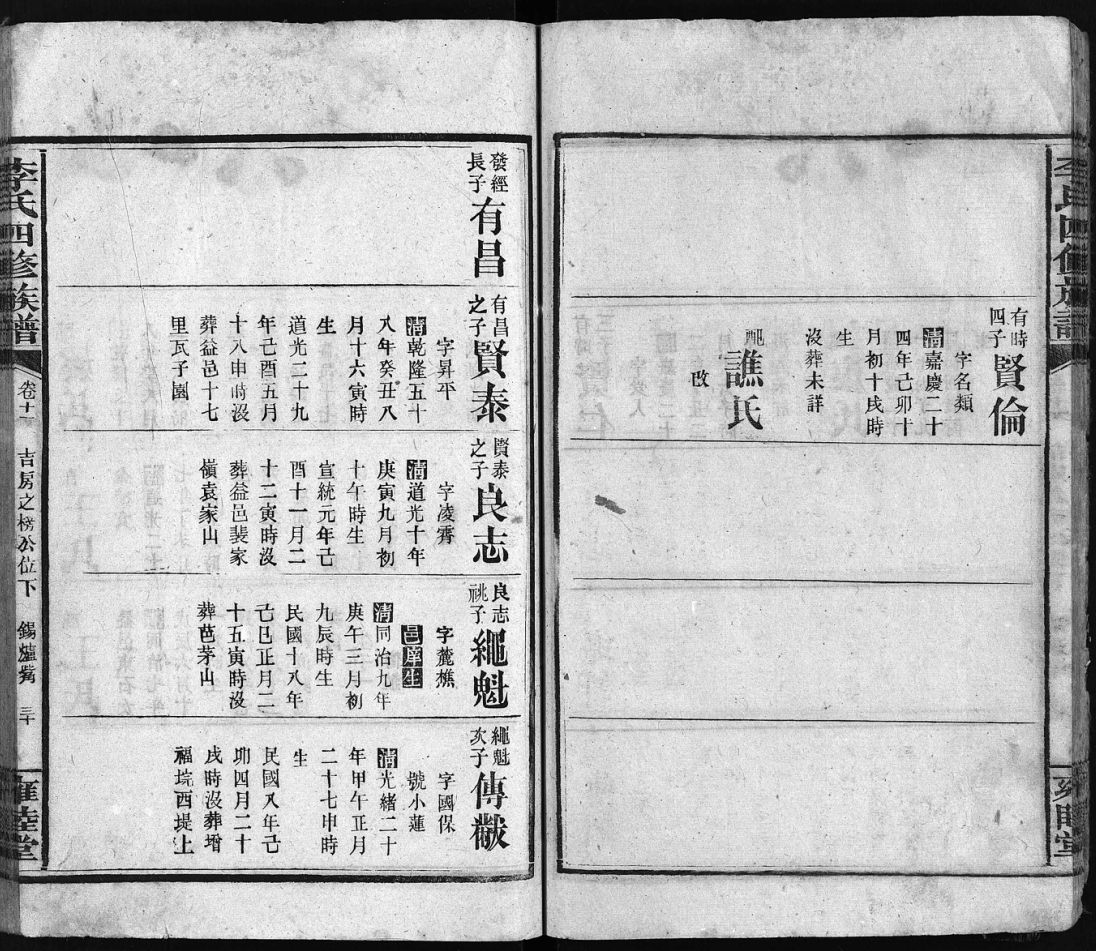 李氏四修族譜
雍睦堂
有時
四子
賢倫
字名類
清嘉慶二十
四年己卯十
月初十戌時
生
沒葬未詳
配
譙氏
改
發經
長子
有昌
有昌
之子
賢泰
字昇平
清乾隆五十
八年癸丑八
月十六寅時
生
道光二十九
年己酉五月
十八申時沒
葬益邑十七
里瓦子園
賢泰
之子
良志
字凌霄
清道光十年
庚寅九月初
十午時生
宣統元年己
酉十一月二
十二寅時沒
葬益邑裴家
嶺袁家山
良志
祧子
繩魁
字蔍樵
邑庠生
清同治九年
庚午三月初
九辰時生
民國十八年
己巳正月二
十五寅時沒
葬芭茅山
繩魁
次子
傳黻
字國保
號小蓮
清光緒二十
年甲午正月
二十七申時
生
民國八年己
卯四月二十
戌時沒葬增
福垸西堤上
李氏四修族譜
卷十一
吉房之榜公位下
錫爐嘴
三十
雍睦堂